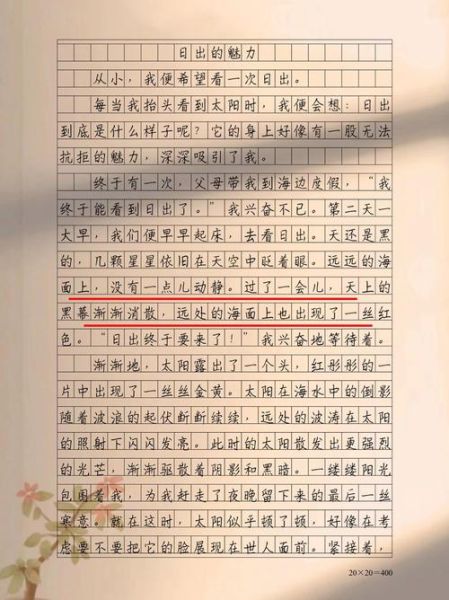 日出的魅力
从小，我便希望看一次日出。
每当我抬头看到太阳时，我便会想：日出
到底是什么样子呢？它的身上好像有一股无法
抗拒的魅力，深深吸引了我。
终于有一次，父母带我到海边度假，“我
终于能看到日出了。”我兴奋不已。第二天一
大早，我们便早早起床，去看日出。天还是黑
的，几颗星星依旧在天空中眨着眼。远远的海
面上，没有一点儿动静。过了一会儿，天上的
黑幕渐渐消散，远处的海面上也出现了一丝红
色。“日出终于要来了！”我兴奋地等待着。
渐渐地，太阳露出了一个头，红彤彤的一
片中出现了一丝丝金黄。太阳在海水中的倒影
随着波浪的起伏断断续续，远处的波涛在太阳
的照射下闪闪发亮。此时的太阳散发出更强烈
的光芒，渐渐驱散着阴影和黑暗。一缕缕阳光
包围着我，为我赶走了夜晚留下来的最后一丝
寒意。就在这时，太阳似乎顿了顿，好像在考
虑要不要把它的脸展现在世人面前。紧接着，
20×20=400